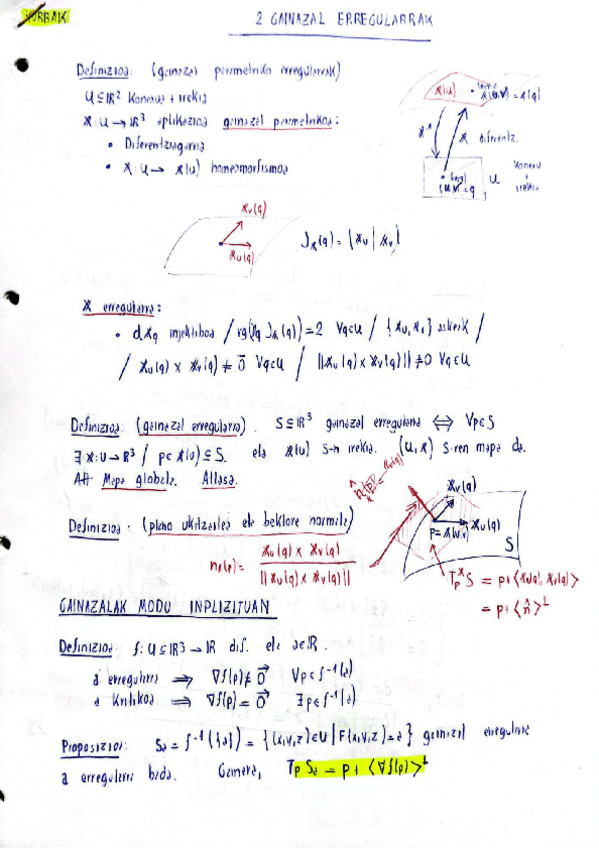 KURBAK
2 GAINAZAL ERREGULARRAK
Definizioa: (gainazal parametriko erregularrak)
U ⊆ ℝ² Konexu + irekia
𝕏: U → ℝ³ aplikazioa gainazal parametrikoa:
• Diferentziagarria
• 𝕏: U → 𝕏(U) homeomorfismoa
𝕏(U)
𝕏(u,v) = 𝕏(q)
𝕏⁻¹
𝕏 diferentz.
(u,v) = q
U
Konexu
+
irekia
𝕏v(q)
𝕏u(q)
J𝕏(q) = (𝕏u | 𝕏v)
𝕏 erregularra:
• d𝕏q injektiboa / rg(J𝕏(q)) = 2 ∀q∈U / {𝕏u, 𝕏v} askeak /
/ 𝕏u(q) × 𝕏v(q) ≠ 0⃗ ∀q∈U / ||𝕏u(q) × 𝕏v(q)|| ≠ 0 ∀q∈U
Definizioa: (gainazal erregularra). S ⊆ ℝ³ gainazal erregularra ⟺ ∀p∈S
∃ 𝕏: U → ℝ³ / p∈ 𝕏(U) ⊆ S. eta 𝕏(U) S-n irekia. (U, 𝕏) S-ren mapa da.
Aft Mapa globala. Atlasa.
Definizioa: (plano ukitzailea eta bektore normala)
n𝕏(p) = 𝕏u(q) × 𝕏v(q) / ||𝕏u(q) × 𝕏v(q)||
𝕏v(q)
𝕏u(q)
P = 𝕏(u,v)
S
Tp^𝕏 S = p + <𝕏u(q), 𝕏v(q)>
= p + <n̂>^⊥
GAINAZALAK MODU INPLIZITUAN
Definizioa: f: U ⊆ ℝ³ → ℝ dif. eta a∈ℝ.
a erregularra ⟹ ∇f(p) ≠ 0⃗ ∀p∈f⁻¹(a)
a Kritikoa ⟹ ∇f(p) = 0⃗ ∃p∈f⁻¹(a)
Proposizioa: Sa = f⁻¹({a}) = {(x,y,z)∈U | F(x,y,z) = a} gainazal erregularra
a erregularra bada. Gainera, Tp Sa = p + <∇f(p)>^⊥